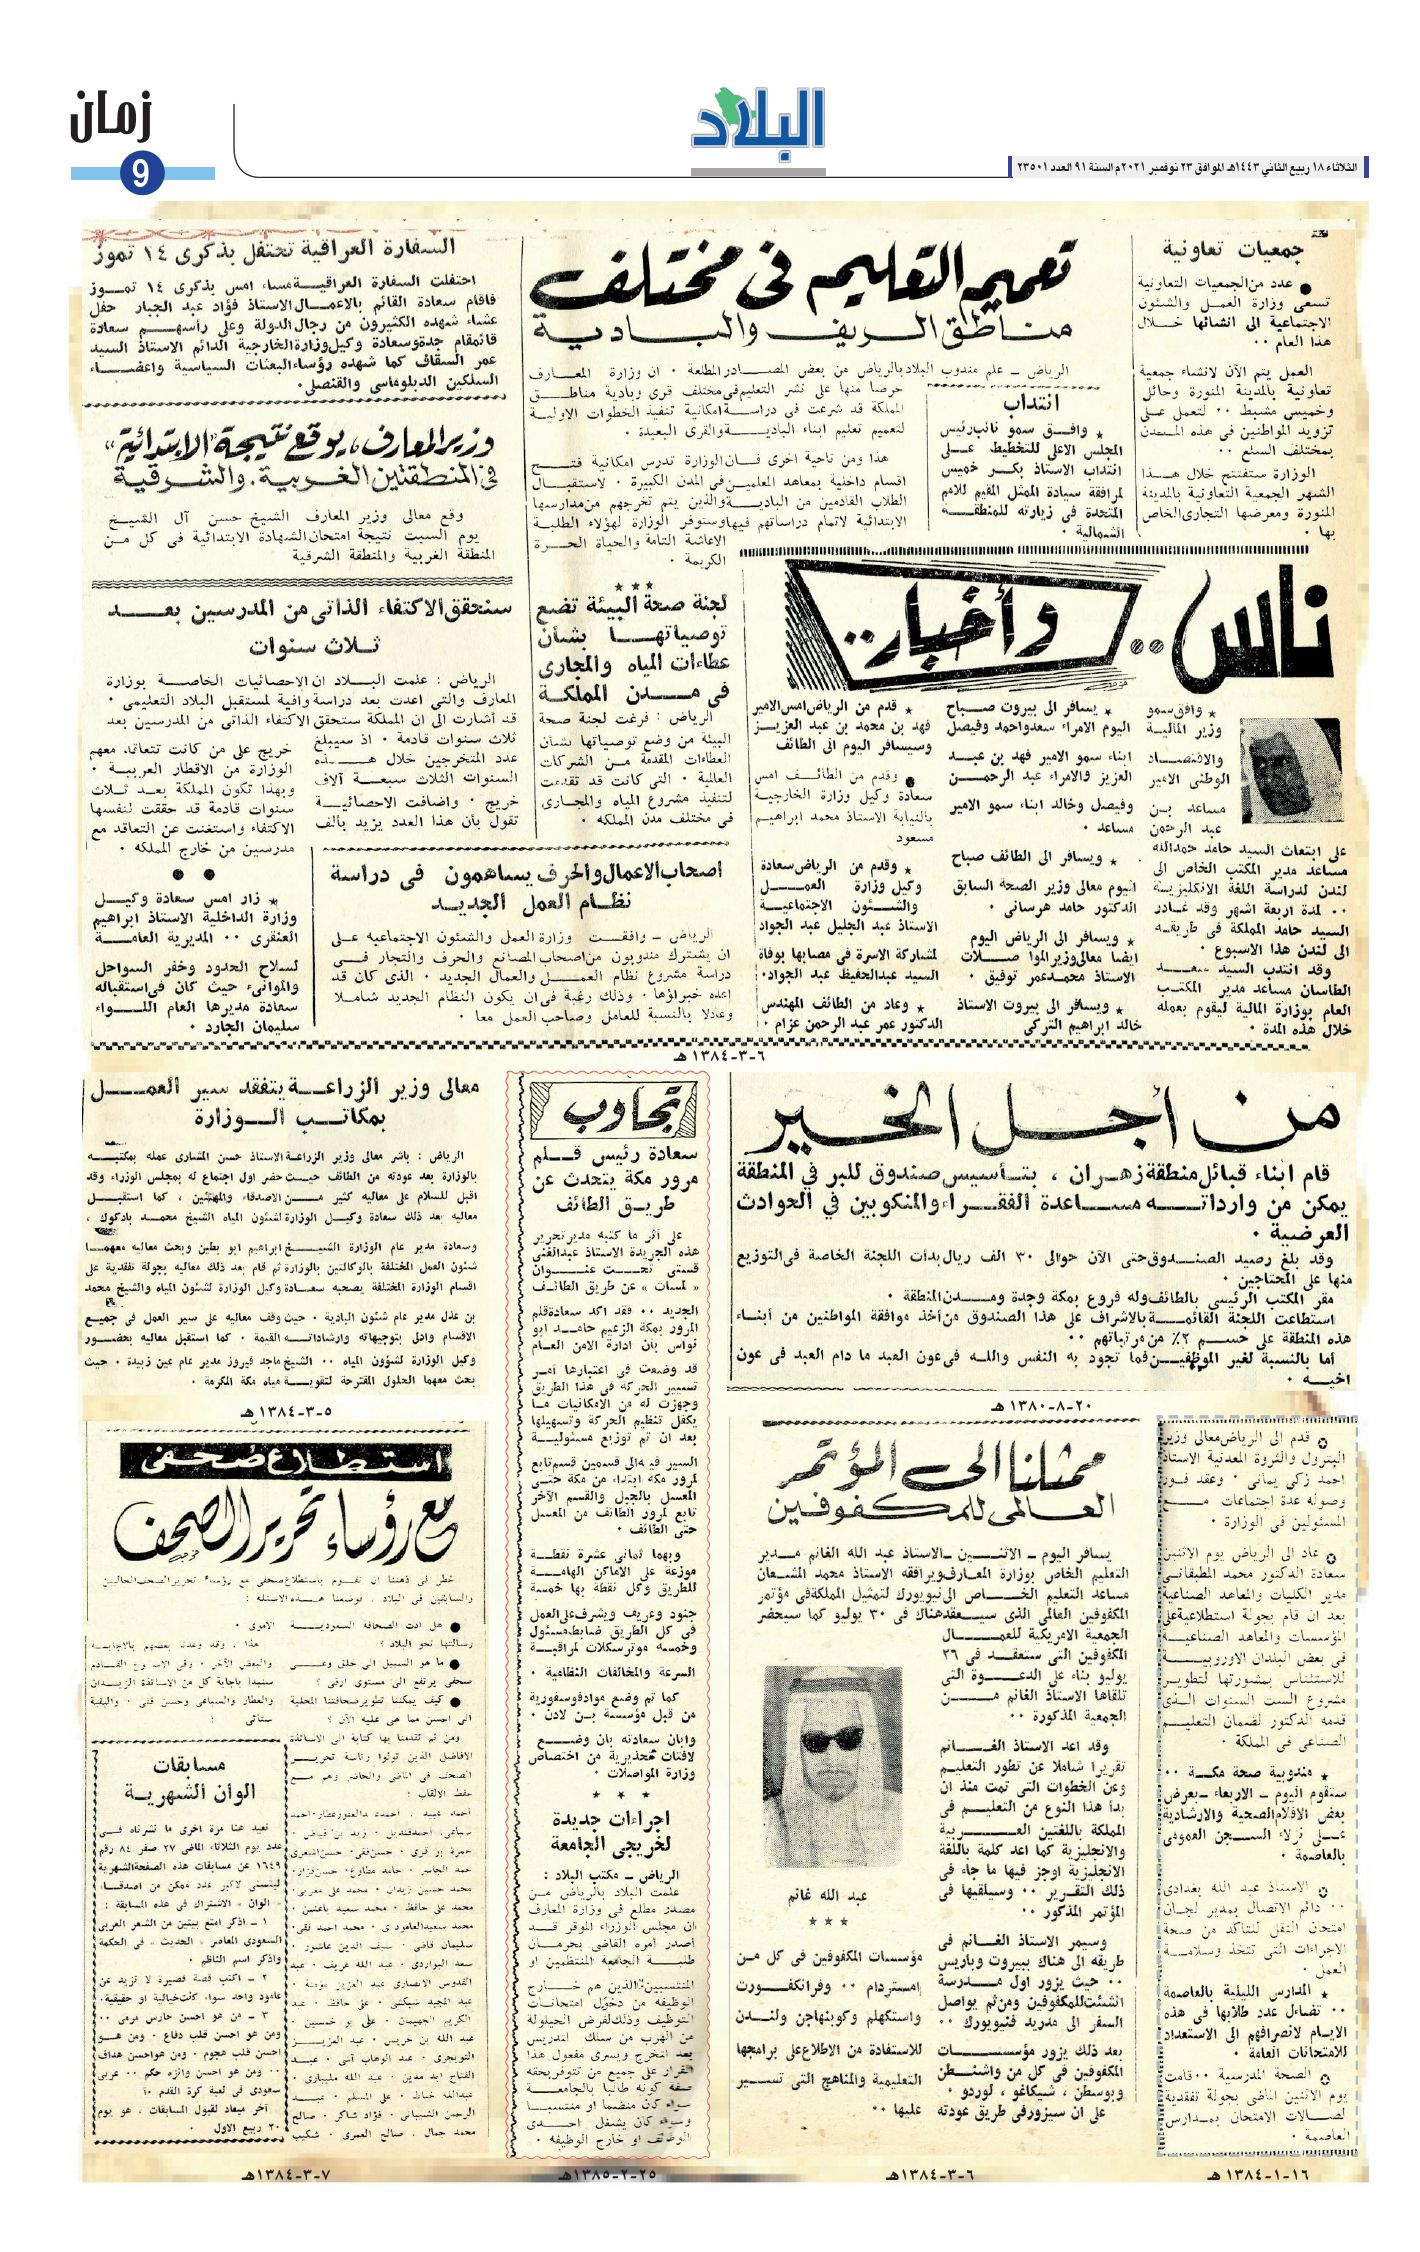 زمان
9
البلاد
الثلاثاء ١٨ ربيع الثاني ١٤٤٣هـ الموافق ٢٣ نوفمبر ٢٠٢١م السنة ٩١ العدد ٢٣٥٠١
جمعيات تعاونية
● عدد من الجمعيات التعاونية
تسعى وزارة العمل والشئون
الاجتماعية الى انشائها خلال
هذا العام ٠٠
العمل يتم الآن لانشاء جمعية
تعاونية بالمدينة المنورة وحائل
وخميس مشيط ٠٠ لتعمل على
تزويد المواطنين في هذه المدن
بمختلف السلع ٠٠
الوزارة ستفتتح خلال هذا
الشهر الجمعية التعاونية بالمدينة
المنورة ومعرضها التجارى الخاص
بها ٠
تعميم التعليم فى مختلف
مناطق الريف والبادية
الرياض ــ علم مندوب البلاد بالرياض من بعض المصادر المطلعة ٠ ان وزارة المعارف
حرصا منها على نشر التعليم في مختلف قرى وبادية مناطق
المملكة قد شرعت فى دراسة امكانية تنفيذ الخطوات الاولية
لتعميم تعليم ابناء البادية والقرى البعيدة ٠
هذا ومن ناحية اخرى فان الوزارة تدرس امكانية فتح
اقسام داخلية بمعاهد المعلمين فى المدن الكبيرة ٠ لاستقبال
الطلاب القادمين من البادية والذين يتم تخرجهم من مدارسها
الابتدائية لاتمام دراساتهم فيها وستوفر الوزارة لهؤلاء الطلبة
الاعاشة التامة والحياة الحرة
الكريمة ٠
انتداب
★ وافق سمو نائب رئيس
المجلس الاعلى للتخطيط على
انتداب الاستاذ بكر خميس
لمرافقة سيادة الممثل المقيم للامم
المتحدة فى زيارته للمنطقة
الشمالية ٠
السفارة العراقية تحتفل بذكرى ١٤ تموز
احتفلت السفارة العراقية مساء امس بذكرى ١٤ تموز
فاقام سعادة القائم بالاعمال الاستاذ فؤاد عبد الجبار حفل
عشاء شهده الكثيرون من رجال الدولة وعلى رأسهم سعادة
قائمقام جدة وسعادة وكيل وزارة الخارجية الدائم الاستاذ السيد
عمر السقاف كما شهده رؤساء البعثات السياسية واعضاء
السلكين الدبلوماسى والقنصلى ٠
وزير المعارف، يوقع نتيجة "الابتدائية"
فى المنطقتين الغربية، والشرقية
وقع معالى وزير المعارف الشيخ حسن آل الشيخ
يوم السبت نتيجة امتحان الشهادة الابتدائية فى كل من
المنطقة الغربية والمنطقة الشرقية
سنحقق الاكتفاء الذاتى من المدرسين بعد
ثلاث سنوات
الرياض : علمت البلاد ان الاحصائيات الخاصة بوزارة
المعارف والتى اعدت بعد دراسة وافية لمستقبل البلاد التعليمى ٠
قد أشارت الى ان المملكة ستحقق الاكتفاء الذاتى من المدرسين بعد
ثلاث سنوات قادمة ٠ اذ سيبلغ
عدد المتخرجين خلال هذه
السنوات الثلاث سبعة آلاف
خريج ٠ واضافت الاحصائية
تقول بأن هذا العدد يزيد بألف
خريج على من كانت تتعاقد معهم
الوزارة من الاقطار العربية ٠
وبهذا تكون المملكة بعد ثلاث
سنوات قادمة قد حققت لنفسها
الاكتفاء واستغنت عن التعاقد مع
مدرسين من خارج المملكه ٠
★ زار امس سعادة وكيل
وزارة الداخلية الاستاذ ابراهيم
العنقرى ٠٠ المديرية العامة
لسلاح الحدود وخفر السواحل
والموانىء حيث كان فى استقباله
سعادة مديرها العام اللواء
سليمان الجارد ٠
لجنة صحة البيئة تضع
توصياتها بشأن
عطاءات المياه والمجارى
فى مدن المملكة
الرياض : فرغت لجنة صحة
البيئة من وضع توصياتها بشأن
العطاءات المقدمة من الشركات
العالمية ٠ التى كانت قد تقدمت
لتنفيذ مشروع المياه والمجارى
فى مختلف مدن المملكه ٠
اصحاب الاعمال والحرف يساهمون فى دراسة
نظام العمل الجديد
الرياض ــ وافقت وزارة العمل والشئون الاجتماعيه على
ان يشترك مندوبون من اصحاب المصانع والحرف والتجار فى
دراسة مشروع نظام العمل والعمال الجديد ٠ الذى كان قد
اعده خبراؤها ٠ وذلك رغبة فى ان يكون النظام الجديد شاملا
وعادلا بالنسبة للعامل وصاحب العمل معا ٠
ناس .. وأخبار ..
★ وافق سمو
وزير المالية
والاقتصاد
الوطنى الامير
مساعد بن
عبد الرحمن
على ابتعاث السيد حامد حمدالله
مساعد مدير المكتب الخاص الى
لندن لدراسة اللغة الانكليزية
٠٠ لمدة اربعة اشهر وقد غادر
السيد حامد المملكة فى طريقه
الى لندن هذا الاسبوع ٠
وقد انتدب السيد سعد
الطاسان مساعد مدير المكتب
العام بوزارة المالية ليقوم بعمله
خلال هذه المدة ٠
★ يسافر الى بيروت صباح
اليوم الامراء سعد واحمد وفيصل
ابناء سمو الامير فهد بن عبد
العزيز والامراء عبد الرحمن
وفيصل وخالد ابناء سمو الامير
مساعد ٠
★ ويسافر الى الطائف صباح
اليوم معالى وزير الصحة السابق
الدكتور حامد هرسانى ٠
★ ويسافر الى الرياض اليوم
ايضا معالى وزير المواصلات
الاستاذ محمد عمر توفيق ٠
★ ويسافر الى بيروت الاستاذ
خالد ابراهيم التركى
★ قدم من الرياض امس الامير
فهد بن محمد بن عبد العزيز
وسيسافر اليوم الى الطائف
● وقدم من الطائف امس
سعادة وكيل وزارة الخارجية
بالنيابة الاستاذ محمد ابراهيم
مسعود
★ وقدم من الرياض سعادة
وكيل وزارة العمل
والشئون الاجتماعية
الاستاذ عبد الجليل عبد الجواد
لمشاركة الاسرة فى مصابها بوفاة
السيد عبدالحفيظ عبد الجواد٠
★ وعاد من الطائف المهندس
الدكتور عمر عبد الرحمن عزام ٠
٦-٣-١٣٨٤هـ
من أجل الخير
قام ابناء قبائل منطقة زهران ، بتأسيس صندوق للبر في المنطقة
يمكن من وارداته مساعدة الفقراء والمنكوبين في الحوادث
العرضية ٠
وقد بلغ رصيد الصندوق حتى الآن حوالى ٣٠ الف ريال بدأت اللجنة الخاصة فى التوزيع
منها على المحتاجين ٠
مقر المكتب الرئيسى بالطائف وله فروع بمكة وجدة ومدن المنطقة ٠
استطاعت اللجنة القائمة بالاشراف على هذا الصندوق من أخذ موافقة المواطنين من أبناء
هذه المنطقة على حسم ٢٪ من مرتباتهم ٠٠
أما بالنسبة لغير الموظفين فما تجود به النفس والله فى عون العبد ما دام العبد فى عون
اخيه ٠
٢٠-٨-١٣٨٠ هـ
تجاوب
سعادة رئيس قلم
مرور مكة يتحدث عن
طريق الطائف
على أثر ما كتبه مدير تحرير
هذه الجريدة الاستاذ عبدالغنى
قستى تحت عنوان
« لمسات » عن طريق الطائف
الجديد ٠٠ فقد اكد سعادة قلم
المرور بمكة الزعيم حامد ابو
نواس بأن ادارة الامن العام
قد وضعت فى اعتبارها أمر
تسيير الحركة فى هذا الطريق
وجهزت له من الامكانيات ما
يكفل تنظيم الحركة وتسهيلها
بعد ان تم توزيع مسئولية
السير فيه الى قسمين قسم تابع
لمرور مكة ابتداء من مكة حتى
المعسل بالجبل والقسم الآخر
تابع لمرور الطائف من المعسل
حتى الطائف ٠
وبهما ثمانى عشرة نقطة
موزعة على الأماكن الهامة
للطريق وكل نقطة بها خمسة
جنود وعريف ويشرف على العمل
فى كل الطريق ضابط مسئول
وخمسه موترسكلات لمراقبة
السرعة والمخالفات النظامية ٠
كما تم وضع مواد فوسفورية
من قبل مؤسسة بن لادن ٠
وابان سعادته بان وضع
لافتات تحذيرية من اختصاص
وزارة المواصلات ٠
★ ★ ★
اجراءات جديدة
لخريجى الجامعة
الرياض ــ مكتب البلاد :
علمت البلاد بالرياض من
مصدر مطلع فى وزارة المعارف
ان مجلس الوزراء الموقر قد
أصدر أمره القاضى بحرمان
طلبة الجامعة المنتظمين او
المنتسبين الذين هم خارج
الوظيفه من دخول امتحانات
التوظيف وذلك لفرض الحيلولة
من الهرب من سلك التدريس
بعد التخرج ويسرى مفعول هذا
القرار على جميع من تتوفر بحقه
صفه كونه طالبا بالجامعة
سواء كان منضما او منتسبا
وسواء كان يشغل احدى
الوظائف او خارج الوظيفه ٠
٢٥-٢-١٣٨٥هـ
معالى وزير الزراعة يتفقد سير العمل
بمكاتب الوزارة
الرياض : باشر معالى وزير الزراعة الاستاذ حسن المشارى عمله بمكتبه
بالوزارة بعد عودته من الطائف حيث حضر اول اجتماع له بمجلس الوزراء وقد
اقبل للسلام على معاليه كثير من الاصدقاء والمهنئين ، كما استقبل
معاليه بعد ذلك سعادة وكيل الوزارة لشئون المياه الشيخ محمد بادكوك ،
وسعادة مدير عام الوزارة الشيخ ابراهيم ابو بطين وبحث معاليه معهما
شئون العمل المختلفة بالوكالتين بالوزارة ثم قام بعد ذلك معاليه بجولة تفقدية على
اقسام الوزارة المختلفة يصحبه سعادة وكيل الوزارة لشئون المياه والشيخ محمد
بن عذل مدير عام شئون البادية ٠ حيث وقف معاليه على سير العمل فى جميع
الاقسام وادلى بتوجيهاته وارشاداته القيمة ٠ كما استقبل معاليه بحضور
وكيل الوزارة لشؤون المياه ٠٠ الشيخ ماجد فيروز مدير عام عين زبيدة ٠ حيث
بحث معهما الحلول المقترحة لتقوية مياه مكة المكرمة ٠
٥-٣-١٣٨٤ هـ
استطلاع صحفى
مع رؤساء تحرير الصحف
خطر فى ذهننا ان نقوم باستطلاع صحفى مع رؤساء تحرير الصحف الحاليين
والسابقين فى البلاد ٠ فوضعنا هذه الاسئلة :
● هل ادت الصحافة السعودية
رسالتها نحو البلاد ؟
● ما هو السبيل الى خلق وعى
صحفى يرتفع الى مستوى ارقى ؟
● كيف يمكننا تطوير صحافتنا المحلية
الى احسن مما هى عليه الآن ؟
ومن ثم تقدمنا بها كتابة الى الاساتذة
الافاضل الذين تولوا رئاسة تحرير
الصحف فى الماضى والحاضر وهم مع
حفظ الالقاب :
سليمان قاضى ٠ سيف الدين عاشور ٠
سعد البواردى ٠ عبد الله عريف ٠ عبد
القدوس الانصارى
عبد المجيد شبكشى ٠ على حافظ ٠ عبد
عبد الله بن خميس ٠ عبد العزيز
التويجرى ٠ عبد الوهاب آشى ٠ عبد
الفتاح ابو مدين ٠ عبد الله مليبارى ٠
عبدالله خياط ٠ على المسلم ٠ عبد
الرحمن الشيبانى ٠ فؤاد شاكر ٠ صالح
محمد جمال ٠ صالح العمرى ٠ شكيب
الاموى ٠
هذا ، وقد وعدنا بعضهم بالاجابة
والبعض الآخر ٠ وفى الاسبوع القادم
سنبدأ باجابة كل من الاساتذة الزيدان
والعطار والسباعى وحسن قتى ٠ والبقية
ستأتى :
مسابقات
الوان الشهرية
نعيد هنا مرة اخرى ما نشرناه فى
عدد يوم الثلاثاء الماضى ٢٧ صفر ٨٤ رقم
١٦٤٩ عن مسابقات هذه الصفحة الشهرية
ليتسنى لاكبر عدد ممكن من اصدقاء
« الوان » الاشتراك فى هذه المسابقة :
١ ــ اذكر امتع بيتين من الشعر العربى
السعودى المعاصر « الحديث » فى الحكمة
واذكر اسم الناظم ٠
٢ ــ اكتب قصة قصيرة لا تزيد عن
عامود واحد سواء كانت خيالية او حقيقية٠
٣ ــ من هو احسن حارس مرمى ٠٠
ومن هو احسن قلب دفاع ٠ ومن هو
احسن قلب هجوم ٠ ومن هو احسن هداف
٠٠ ومن هو احسن وانزه حكم ٠٠ عربى
سعودى فى لعبة كرة القدم ١٠
آخر ميعاد لقبول المسابقات ، هو يوم
٢٠ ربيع الاول ٠
٧-٣-١٣٨٤هـ
ممثلنا الى المؤتمر
العالمى للمكفوفين
يسافر اليوم ــ الاثنين ــ الاستاذ عبد الله الغانم مدير
التعليم الخاص بوزارة المعارف ويرافقه الاستاذ محمد المشعان
مساعد التعليم الخاص الى نيويورك لتمثيل المملكة فى مؤتمر
المكفوفين العالمى الذى سيعقد هناك فى ٣٠ يوليو كما سيحضر
الجمعية الامريكية للعمال
المكفوفين التى ستعقد فى ٢٦
يوليو بناء على الدعوة التى
تلقاها الاستاذ الغانم من
الجمعية المذكورة ٠٠
وقد اعد الاستاذ الغانم
تقريرا شاملا عن تطور التعليم
وعن الخطوات التى تمت منذ ان
بدأ هذا النوع من التعليم فى
المملكة باللغتين العربية
والانجليزية كما اعد كلمة باللغة
الانجليزية اوجز فيها ما جاء فى
ذلك التقرير ٠٠ وسيلقيها فى
المؤتمر المذكور ٠٠
وسيمر الاستاذ الغانم فى
طريقه الى هناك ببيروت وباريس
٠٠ حيث يزور اول مدرسة
انشئت للمكفوفين ومن ثم يواصل
السفر الى مدريد فنيويورك ٠٠
بعد ذلك يزور مؤسسات
المكفوفين فى كل من واشنطن
وبوسطن ، شيكاغو ، لوردو ٠
على ان سيزور فى طريق عودته
عبد الله غانم
★ ★ ★
مؤسسات المكفوفين فى كل من
امستردام ٠٠ وفرانكفورت
واستكهلم وكوبنهاجن ولندن
للاستفادة من الاطلاع على برامجها
التعليمية والمناهج التى تسير
عليها ٠٠
٦-٣-١٣٨٤هـ
قدم الى الرياض معالى وزير
البترول والثروة المعدنية الاستاذ
احمد زكى يمانى ٠ وعقد فور
وصوله عدة اجتماعات مع
المسئولين فى الوزارة ٠
عاد الى الرياض يوم الاثنين
سعادة الدكتور محمد المطبقانى
مدير الكليات والمعاهد الصناعية
بعد ان قام بجولة استطلاعية على
المؤسسات والمعاهد الصناعية
فى بعض البلدان الاوروبية
للاستئناس بمشورتها لتطوير
مشروع الست السنوات الذى
قدمه الدكتور لضمان التعليم
الصناعى فى المملكة ٠
★ مندوبية صحة مكة ٠٠
ستقوم اليوم ــ الاربعاء ــ بعرض
بعض الافلام الصحية والارشادية
على نزلاء السجن العمومى
بالعاصمة ٠
الاستاذ عبد الله بغدادى
٠٠ دائم الاتصال بمدير لجان
امتحان النقل للتأكد من صحة
الاجراءات التى تتخذ وسلامة
العمل ٠
★ المدارس الليلية بالعاصمة
٠٠ تضاءل عدد طلابها فى هذه
الايام لانصرافهم الى الاستعداد
للامتحانات العامة ٠
الصحة المدرسية ٠٠ قامت
يوم الاثنين الماضى بجولة تفقدية
لصالات الامتحان بمدارس
العاصمة ٠
١٦-١-١٣٨٤ هـ